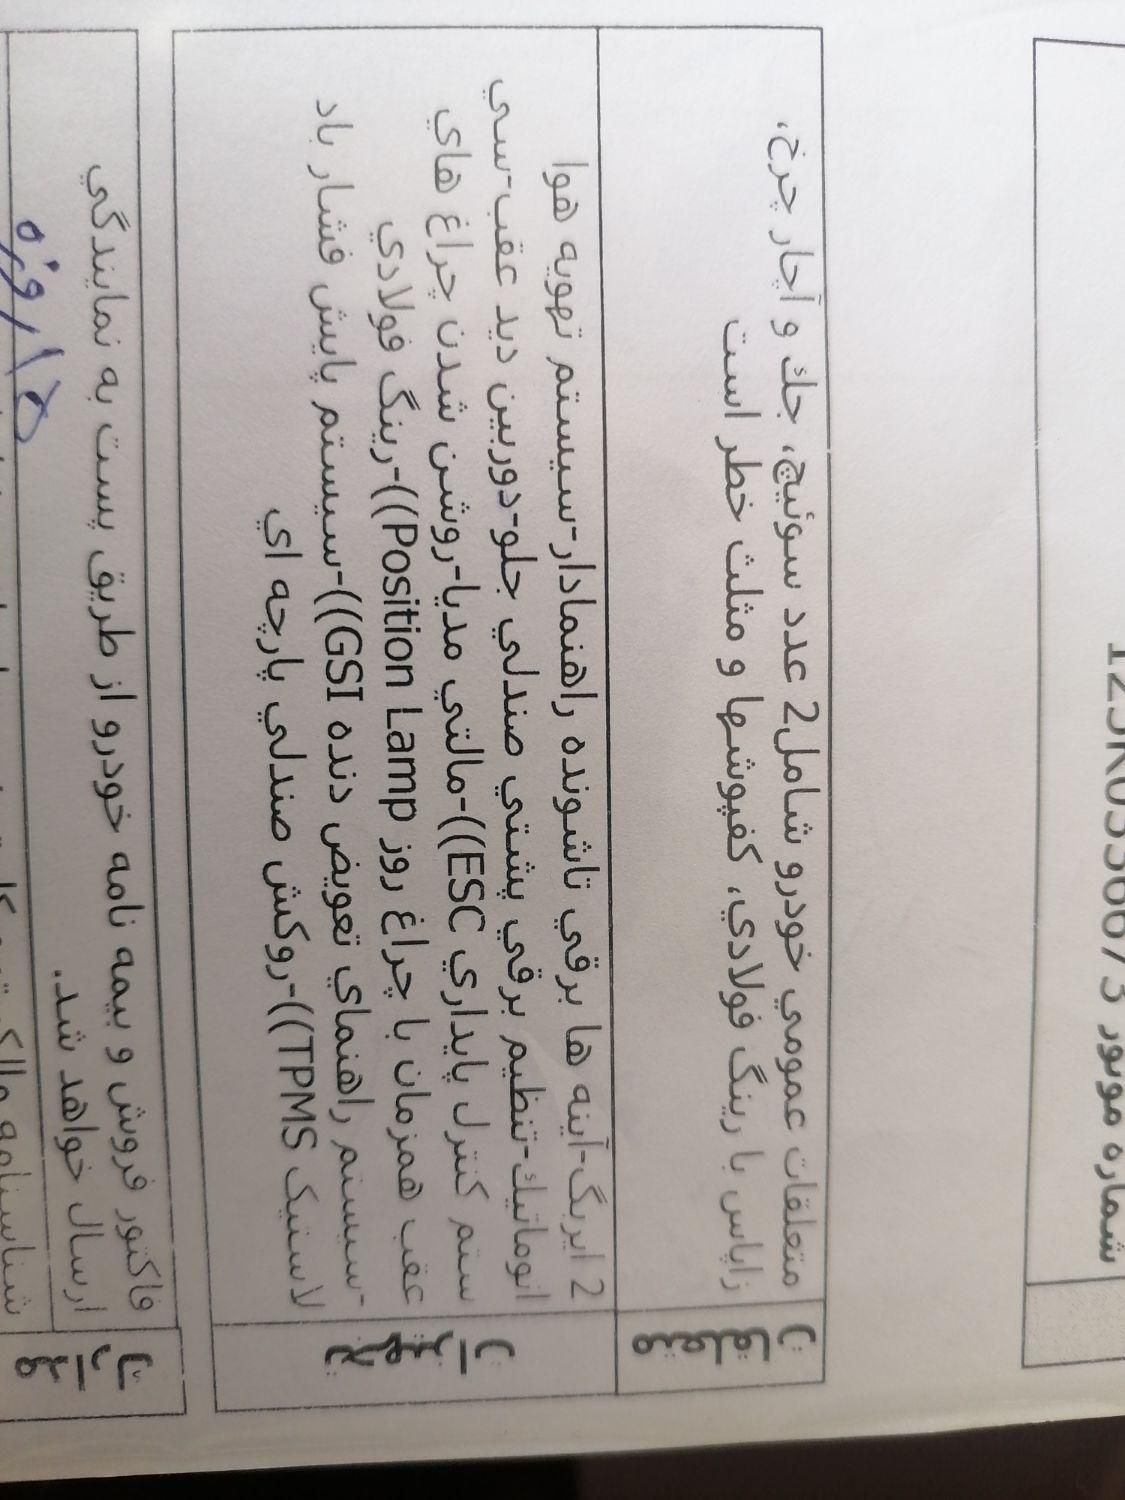 شماره موتور
متعلقات
متعلقات عمومي خودرو شامل2 عدد سوئيچ، جك و آچار چرخ،
زاپاس با رينگ فولادي، كفپوشها و مثلث خطر است
تجهيزات
2 ايربگ-آينه ها برقي تاشونده راهنمادار-سيستم تهويه هوا
اتوماتيك-تنظيم برقي پشتي صندلي جلو-دوربين ديد عقب-سي
ستم كنترل پايداري ESC))-مالتي مديا-روشن شدن چراغ هاي
عقب همزمان با چراغ روز Position Lamp))-رينگ فولادي
-سيستم راهنماي تعويض دنده GSI))-سيستم پايش فشار باد
لاستيک TPMS))-روكش صندلي پارچه اي
فاكتور فروش و بيمه نامه خودرو از طريق پست به نمايندگي
ارسال خواهد شد.
شناسنامه مالك